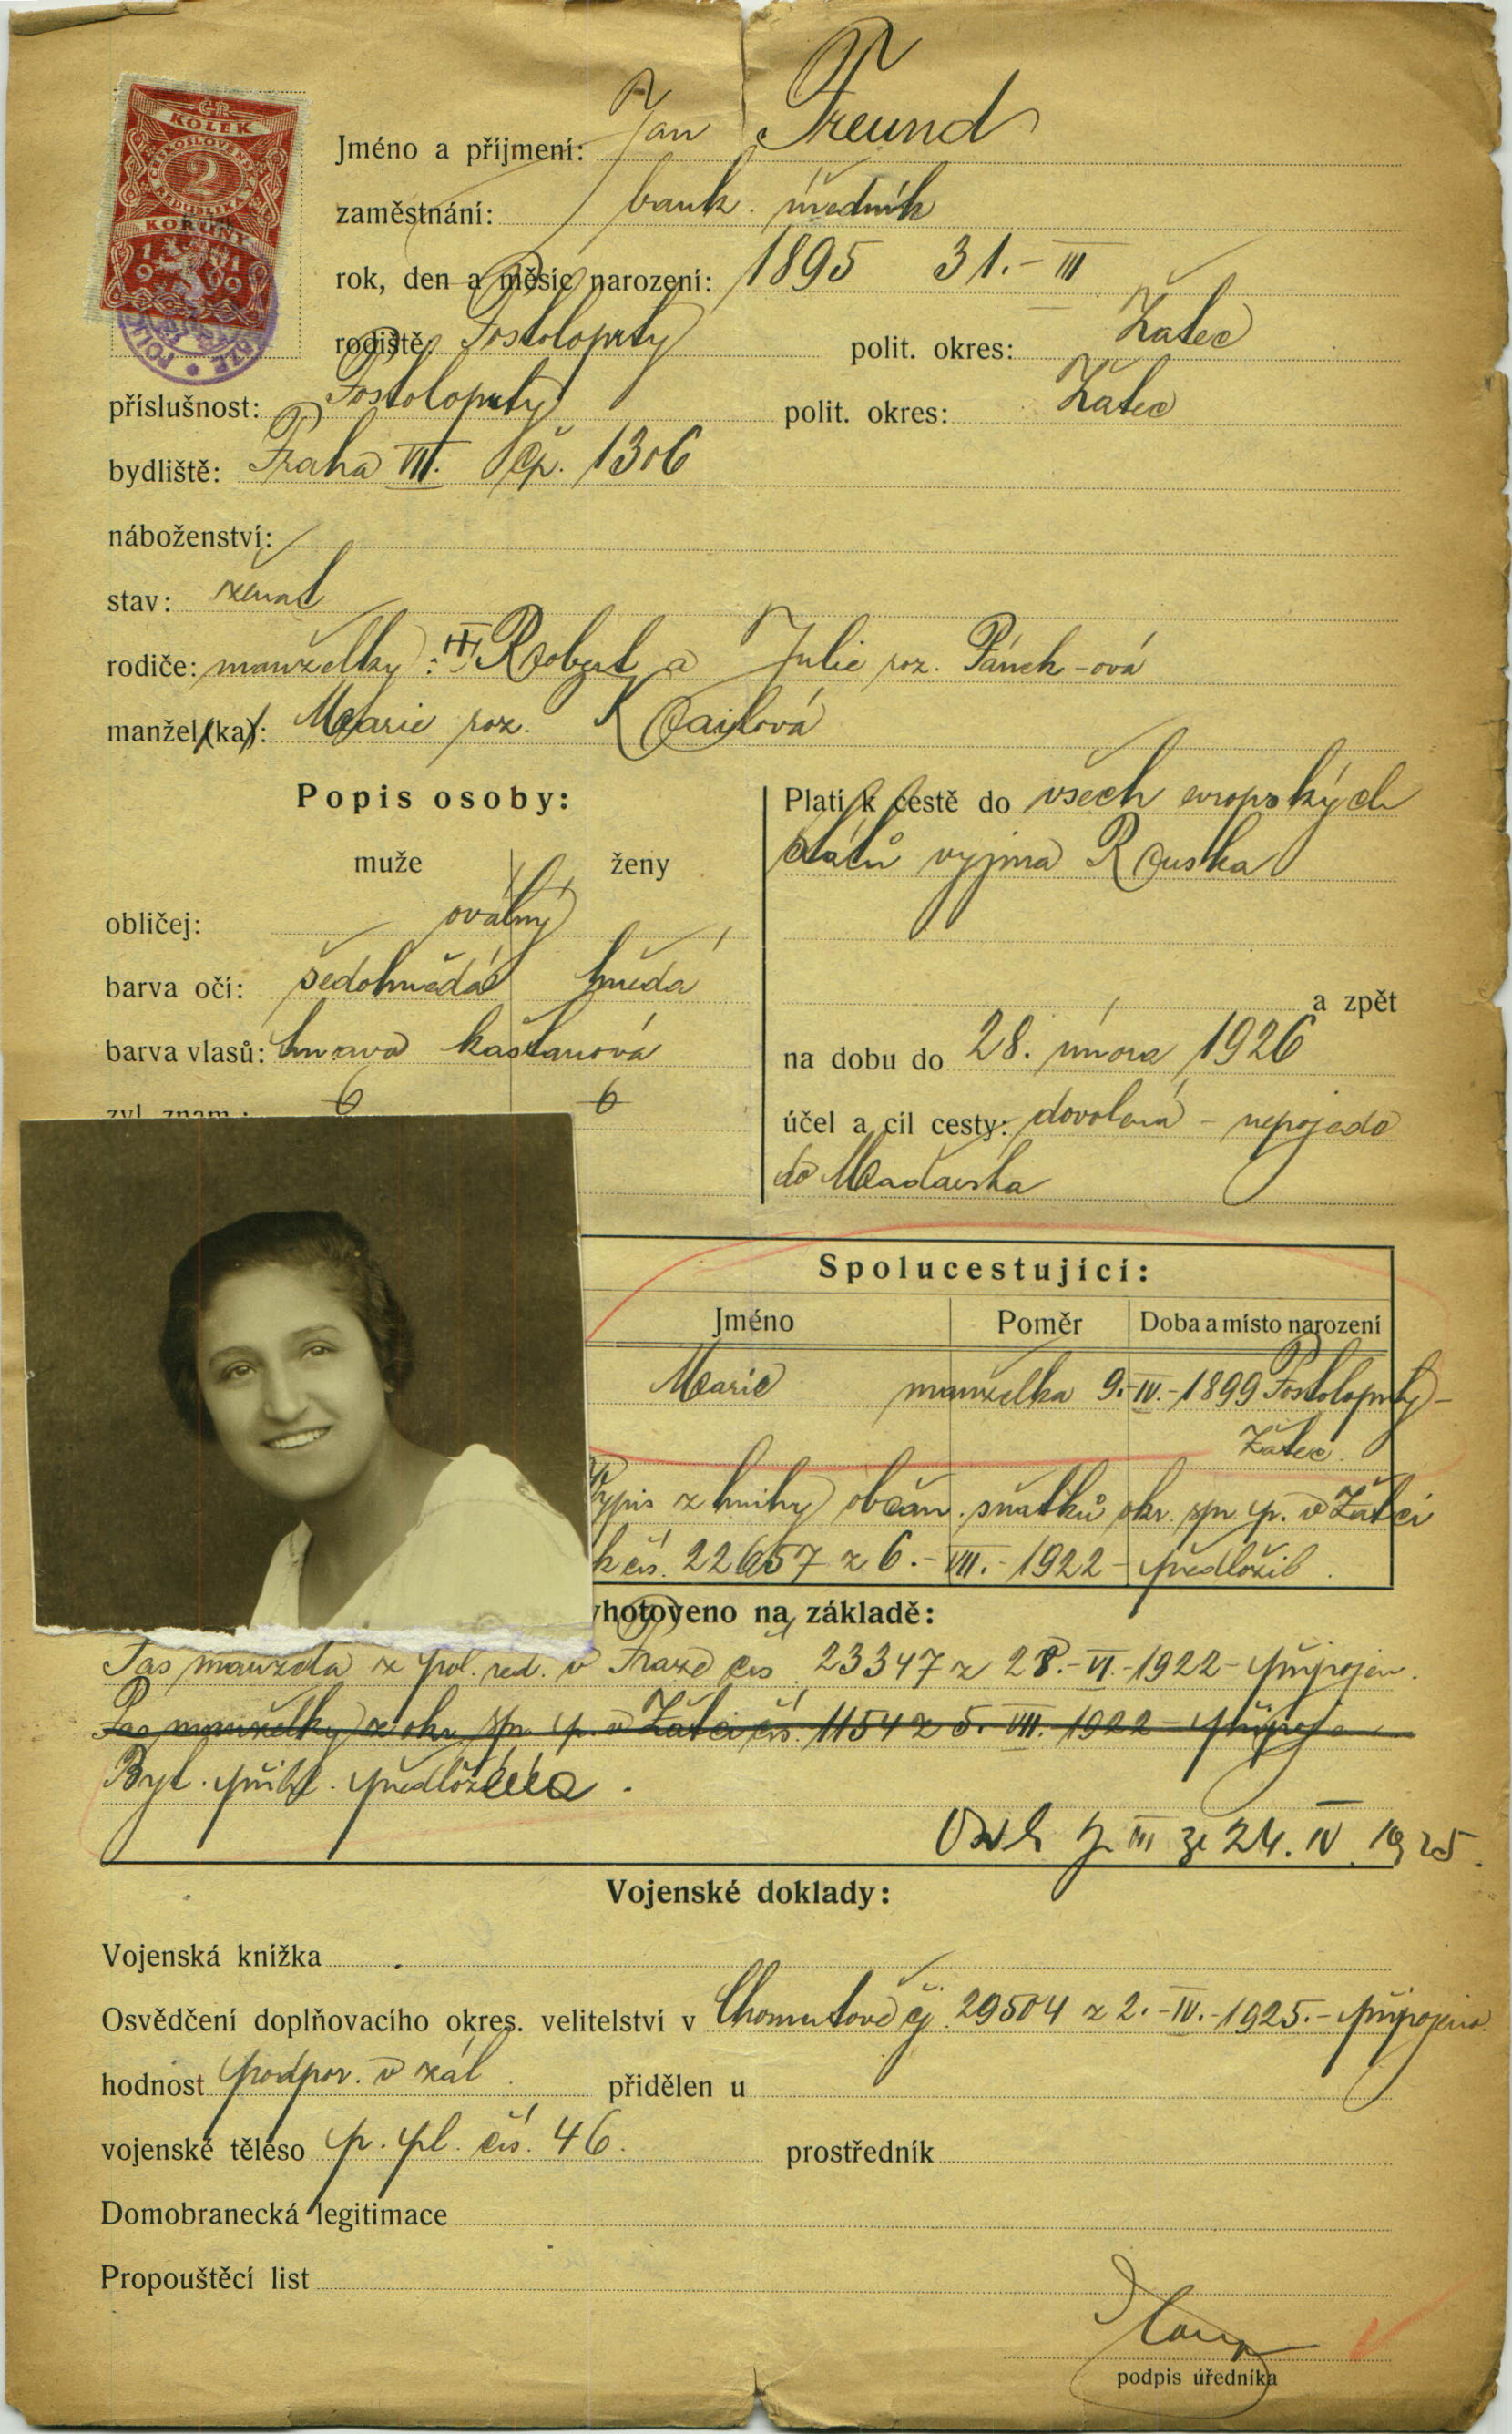 ČR
KOLEK
ČESKOSLOVENSKÁ
2
REPUBLIKA
KORUNY
Jméno a příjmení: Jan Freund
zaměstnání: bank. úředník
rok, den a měsíc narození: 1895 31.- III
rodiště: Postoloprty polit. okres: Žatec
příslušnost: Postoloprty polit. okres: Žatec
bydliště: Praha VII. čp. 1306
náboženství:
stav: ženat
rodiče: manželky: Robert a Julie roz. Pánek-ová
manžel(ka): Marie roz.
Popis osoby:
muže ženy
obličej: oválný
barva očí: šedohnědá hnědá
barva vlasů: tmavá kaštanová
zvl. znam.:
Platí k cestě do všech evropských
států vyjma Ruska
a zpět
na dobu do 28. února 1926
účel a cíl cesty: dovolená - nepojede
do Maďarska
Spolucestující:
Jméno Poměr Doba a místo narození
Marie manželka 9.-IV.-1899 Postoloprty-
Žatec.
Výpis z knihy občan. sňatků okr. spr. p. v Žatci
k čís. 22657 z 6.-VIII.-1922- předložil.
yhotoveno na základě:
Pas manžela z pol. řed. v Praze čís. 23347 z 28.-VI.-1922- připojen.
Pas manželky z okr. spr. p. v Žatci čís. 1154 z 5. VIII. 1922 -
Byt. přihl. předložena.
III ze 24. IV. 1925.
Vojenské doklady:
Vojenská knížka
Osvědčení doplňovacího okres. velitelství v Chomutově čj. 29504 z 2.-IV.-1925.- připojeno.
hodnost podpor. v zál. přidělen u
vojenské těleso p. pl. čís. 46. prostředník
Domobranecká legitimace
Propouštěcí list
podpis úředníka